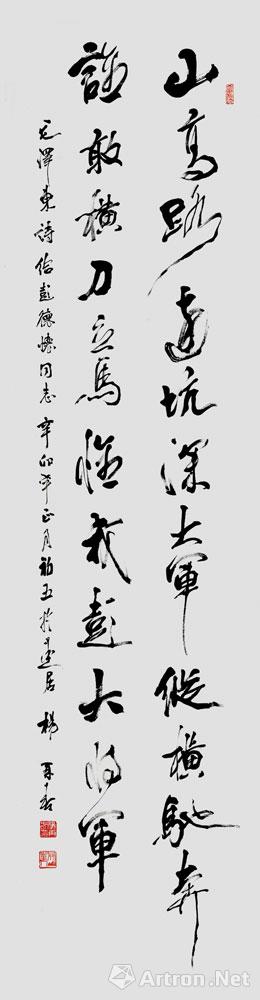 山高路遠坑深大軍縱橫馳奔
誰敢橫刀立馬惟我彭大將軍
毛澤東詩給彭德懷同志 辛卯年正月初五於居 楊
Artron.Net